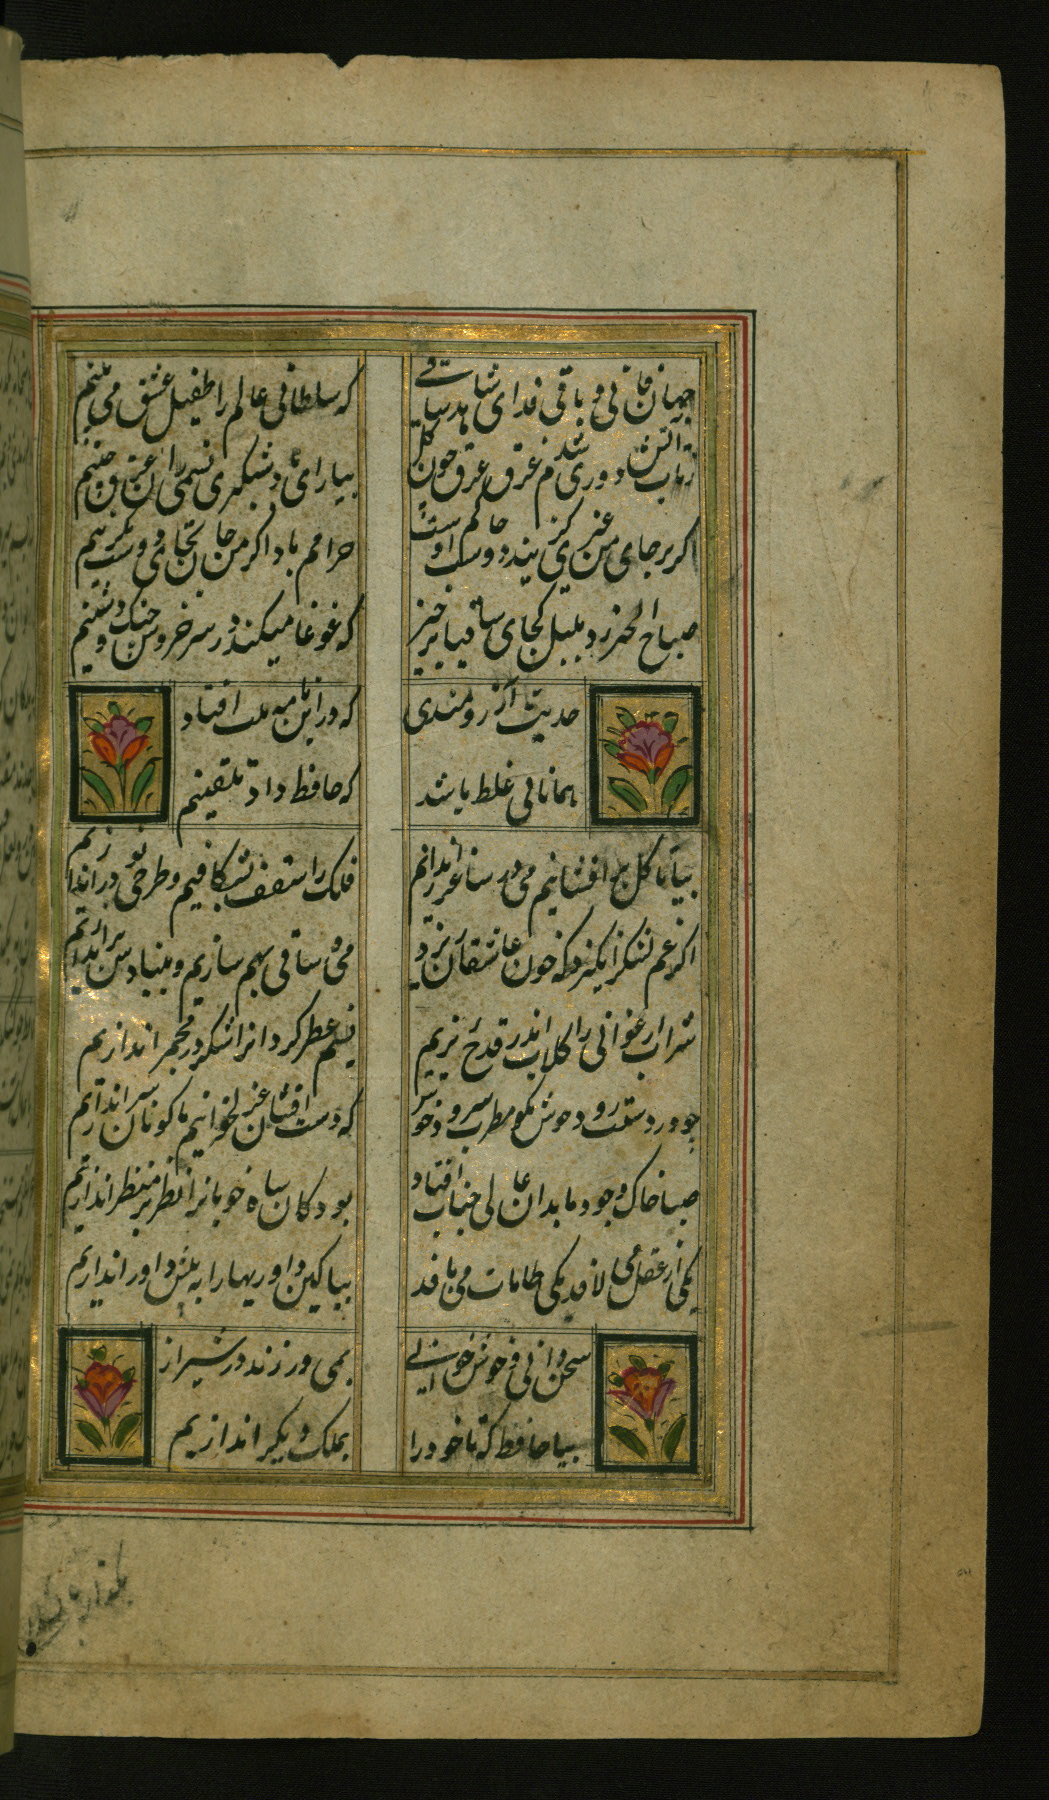 جهان فانی و باقی فدای شاهد و ساقی
که سلطانی عالم را طفیل عشق می بینم
ز تاب آتش دوری شدم غرق عرق چون گل
بیار ای باد شبگیری نسیمی زان عرق چینم
اگر بر جای من غیری گزیند دوست حاکم اوست
حرامم باد اگر من جان بجای دوست بگزینم
صباح الخیر زد بلبل کجای ساقیا برخیز
که غوغا میکند در سر خروش چنک دوشینم
حدیث آرزومندی
که در این نامه ثبت افتاد
همانا بی غلط باشد
که حافظ داد تلقینم
بیا تا کل بر افشانیم می در ساغر اندازیم
فلک را سقف بشکافیم و طرحی نو در اندازیم
اگر غم لشکر انگیزد که خون عاشقان ریزد
می و ساقی بهم سازیم و بنیادش براندازیم
شراب ارغوانی را کلاب اندر قدح ریزیم
نسیم عطر کردانرا شکر در مجمر اندازیم
چو در دستست رودی خوش بکو مطرب سرودی خوش
که دست افشان غزل خوانیم پا کوبان سر اندازیم
صبا خاک وجود ما بدان عالی جناب افتاد
بود کان شاه خوبانرا نظر بر منظر اندازیم
یکی از عقل می لافد یکی طامات می بافد
بیا کین داوریها را به پیش داور اندازیم
سخن دانی و خوش خوانی
نمی ورزند در شیراز
بیا حافظ که تا خود را
بملک دیکر اندازیم